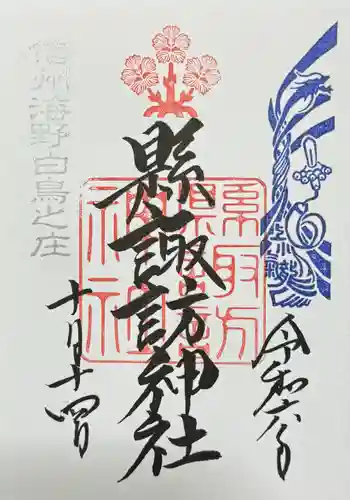 令和六年
縣諏訪神社
十月十四日
信州海野白鳥之庄
縣諏訪神社